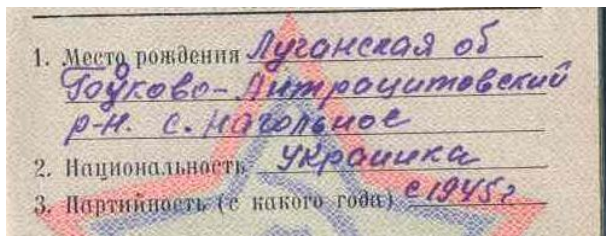 1. Место рождения Луганская об
Боково-Антрацитовский
р-н. с. Нагольное
2. Национальность Украинка
3. Партийность (с какого года) с 1945 г